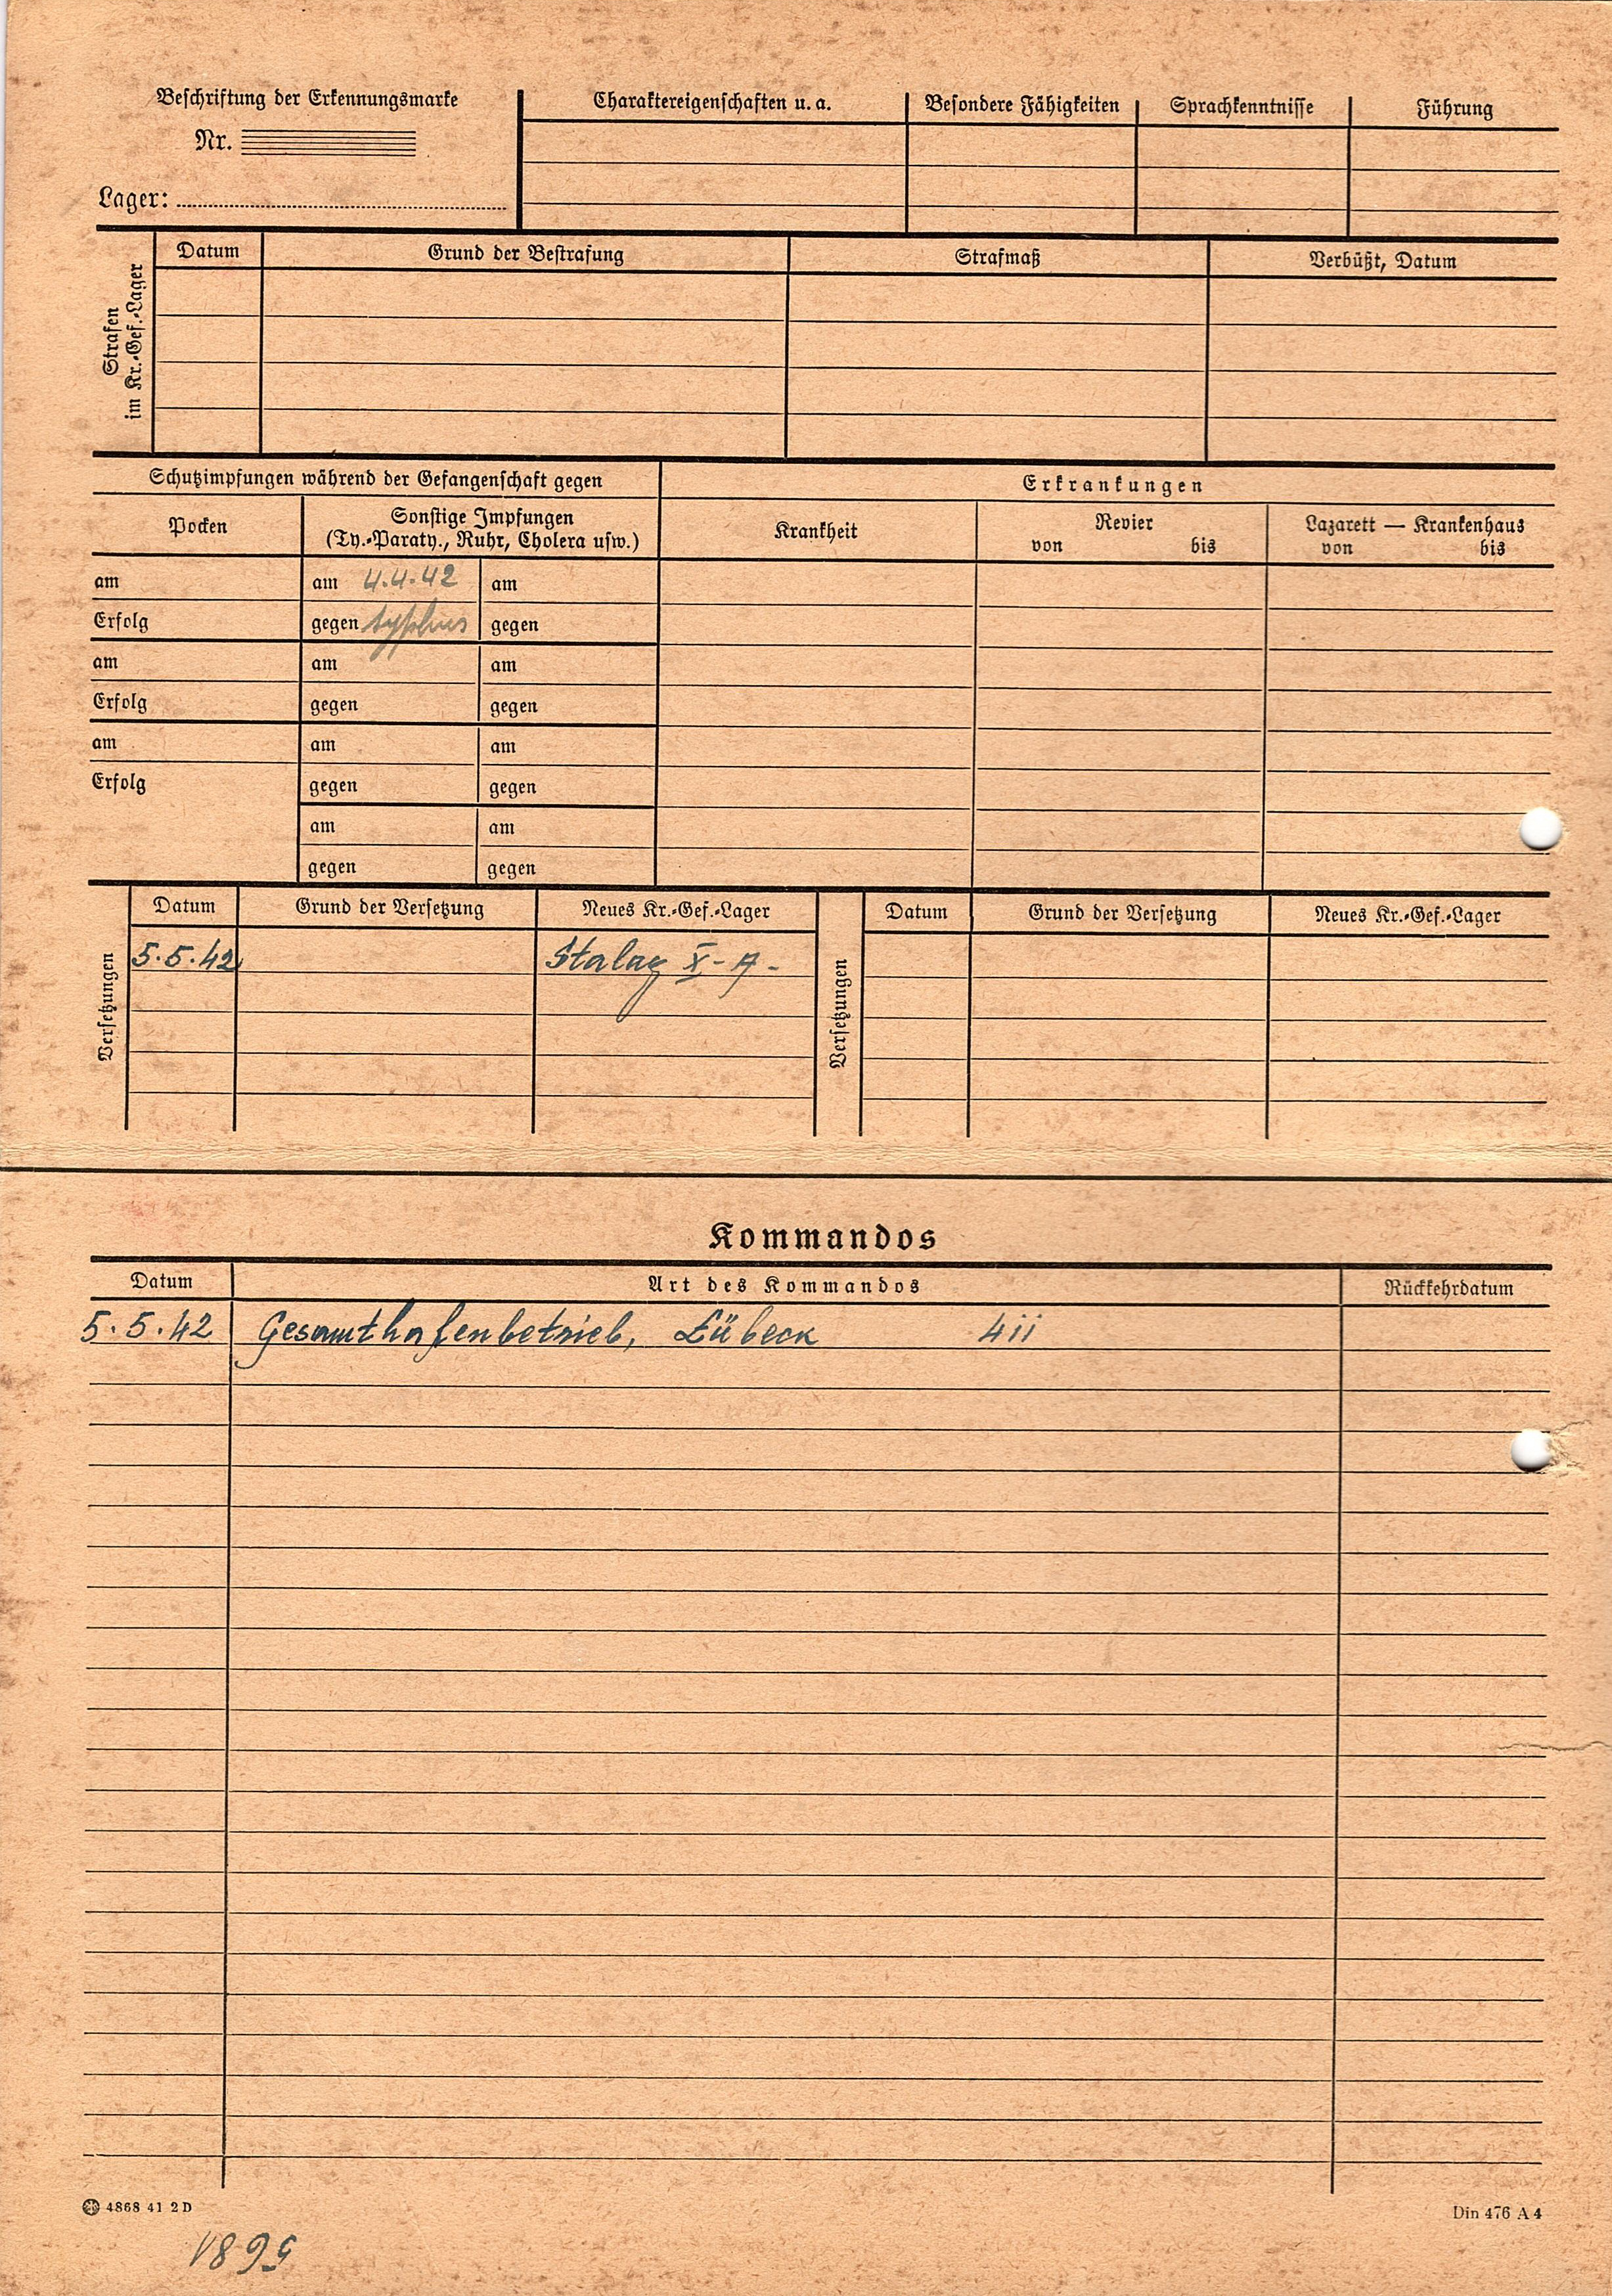 Beschriftung der Erkennungsmarke
Nr.
Lager:
Charaktereigenschaften u. a. Besondere Fähigkeiten Sprachkenntnisse Führung
Strafen
im Kr.-Gef.-Lager
Datum Grund der Bestrafung Strafmaß Verbüßt, Datum
Schutzimpfungen während der Gefangenschaft gegen
Erkrankungen
Pocken
Sonstige Impfungen
(Ty.-Paraty., Ruhr, Cholera usw.)
Krankheit
Revier
von bis
Lazarett — Krankenhaus
von bis
am am 4.4.42 am
Erfolg gegen typhus gegen
am am am
Erfolg gegen gegen
am am am
Erfolg gegen gegen
am am
gegen gegen
Versetzungen
Datum Grund der Versetzung Neues Kr.-Gef.-Lager
5.5.42 Stalag X-A-
Versetzungen
Datum Grund der Versetzung Neues Kr.-Gef.-Lager
Kommandos
Datum Art des Kommandos Rückkehrdatum
5.5.42 Gesamthafenbetrieb, Lübeck 4ii
4868 41 2 D
Din 476 A 4